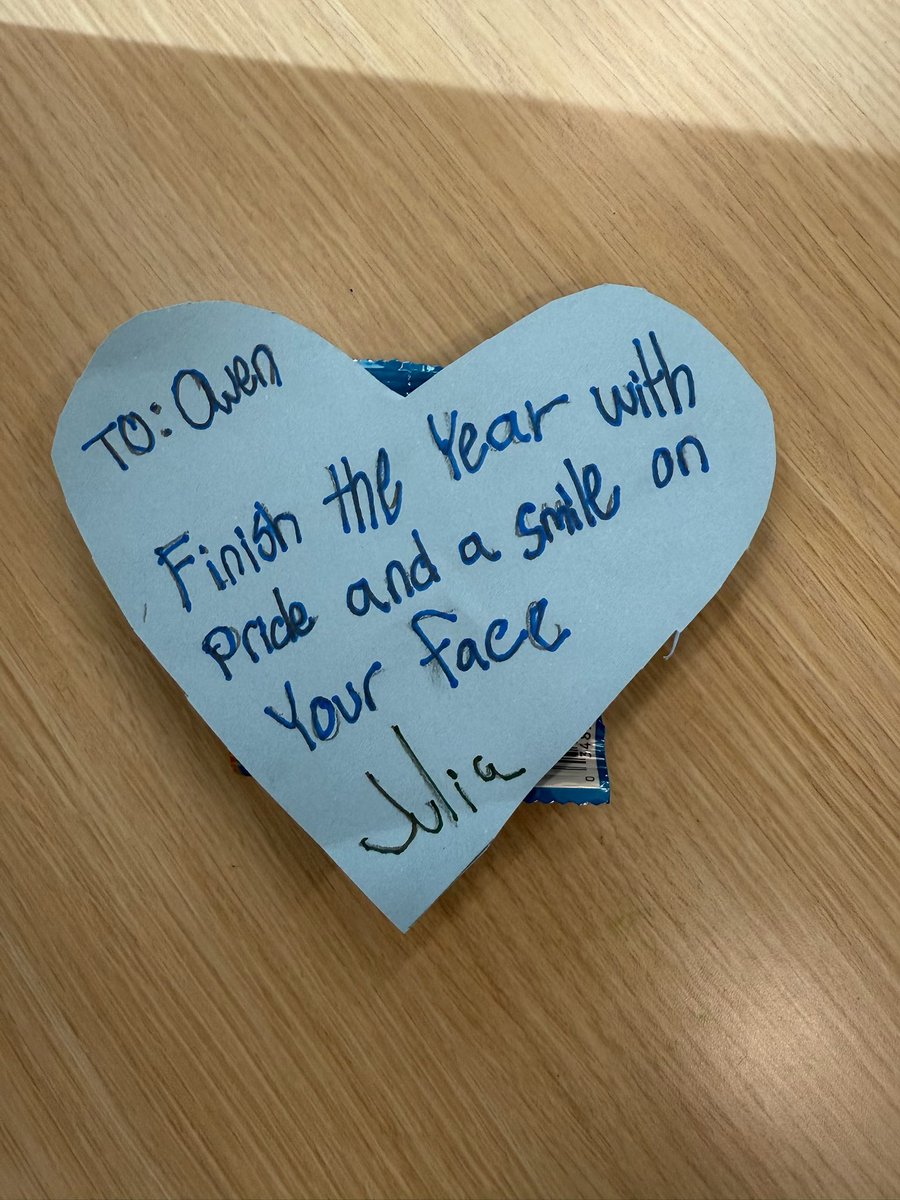 TO: Owen
Finish the Year with
pride and a smile on
Your face
Julia